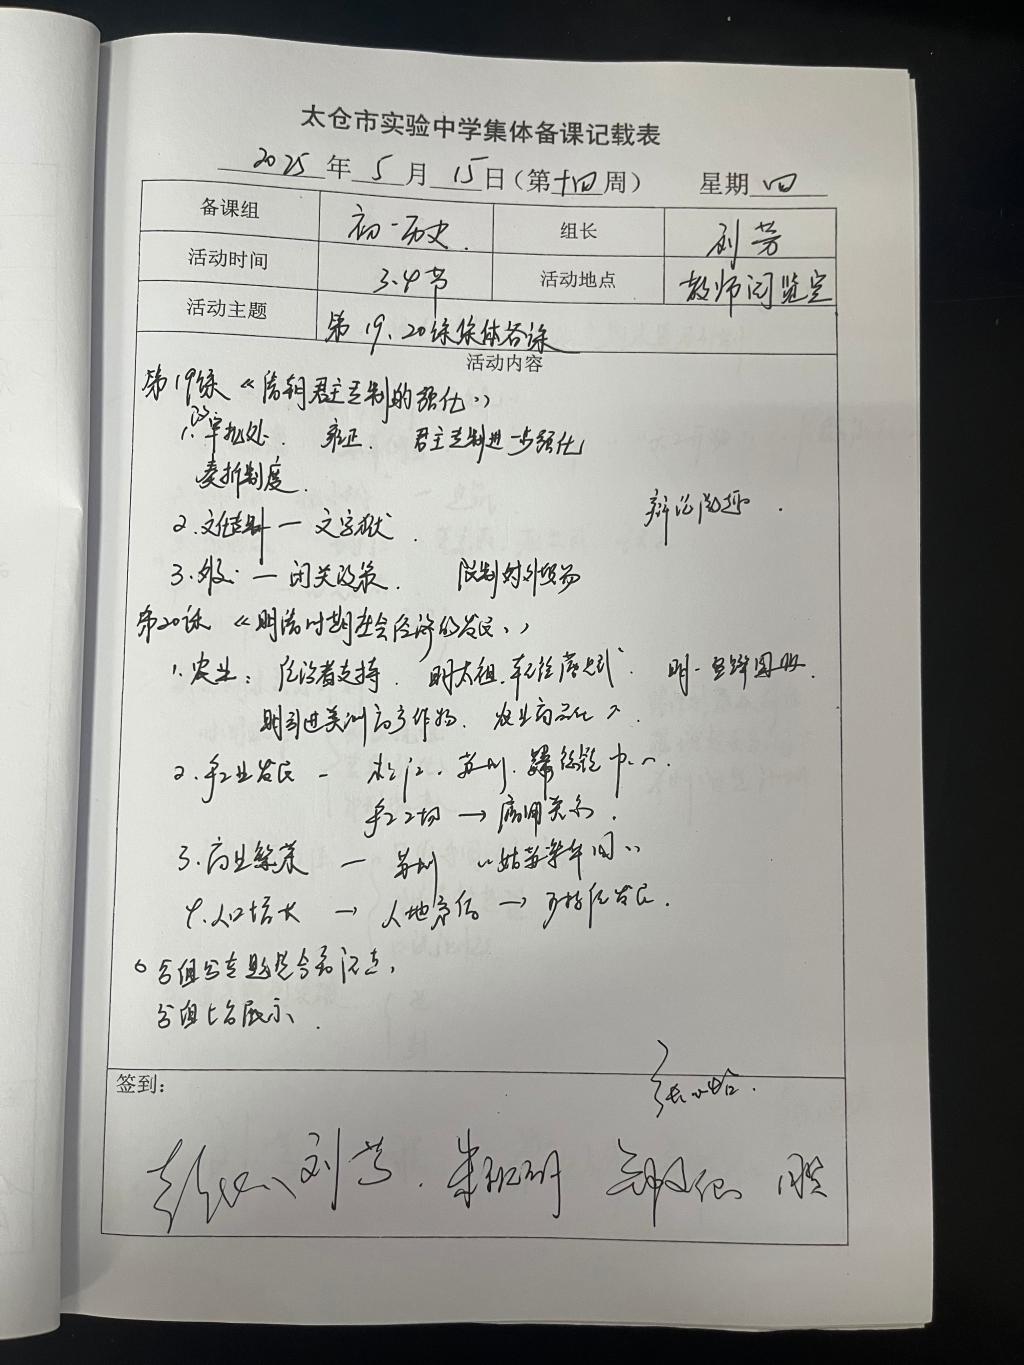 太仓市实验中学集体备课记载表
2025年5月15日(第十四周) 星期四
备课组 初一历史. 组长 刘芳
活动时间 3.4节 活动地点 教师阅览室
活动主题 第19、20课集体备课
活动内容
第19课《清朝君主专制的强化》
1.军机处. 雍正 君主专制进一步强化
奏折制度.
2.文化专制 — 文字狱.
3.外交 — 闭关政策. 限制对外贸易
第20课 《明清时期社会经济的发展》
1.农业: 统治者支持. 明太祖. 明-鱼鳞图册.
明引进美洲高产作物. 农业商品化
2.手工业发展 — 松江. 苏州.
手工场 → 雇佣关系.
3.商业繁荣 — 苏州 "姑苏繁华图"
4.人口增长 → 人地矛盾 → 可持续发展.
分组上台展示.
签到:
刘芳.